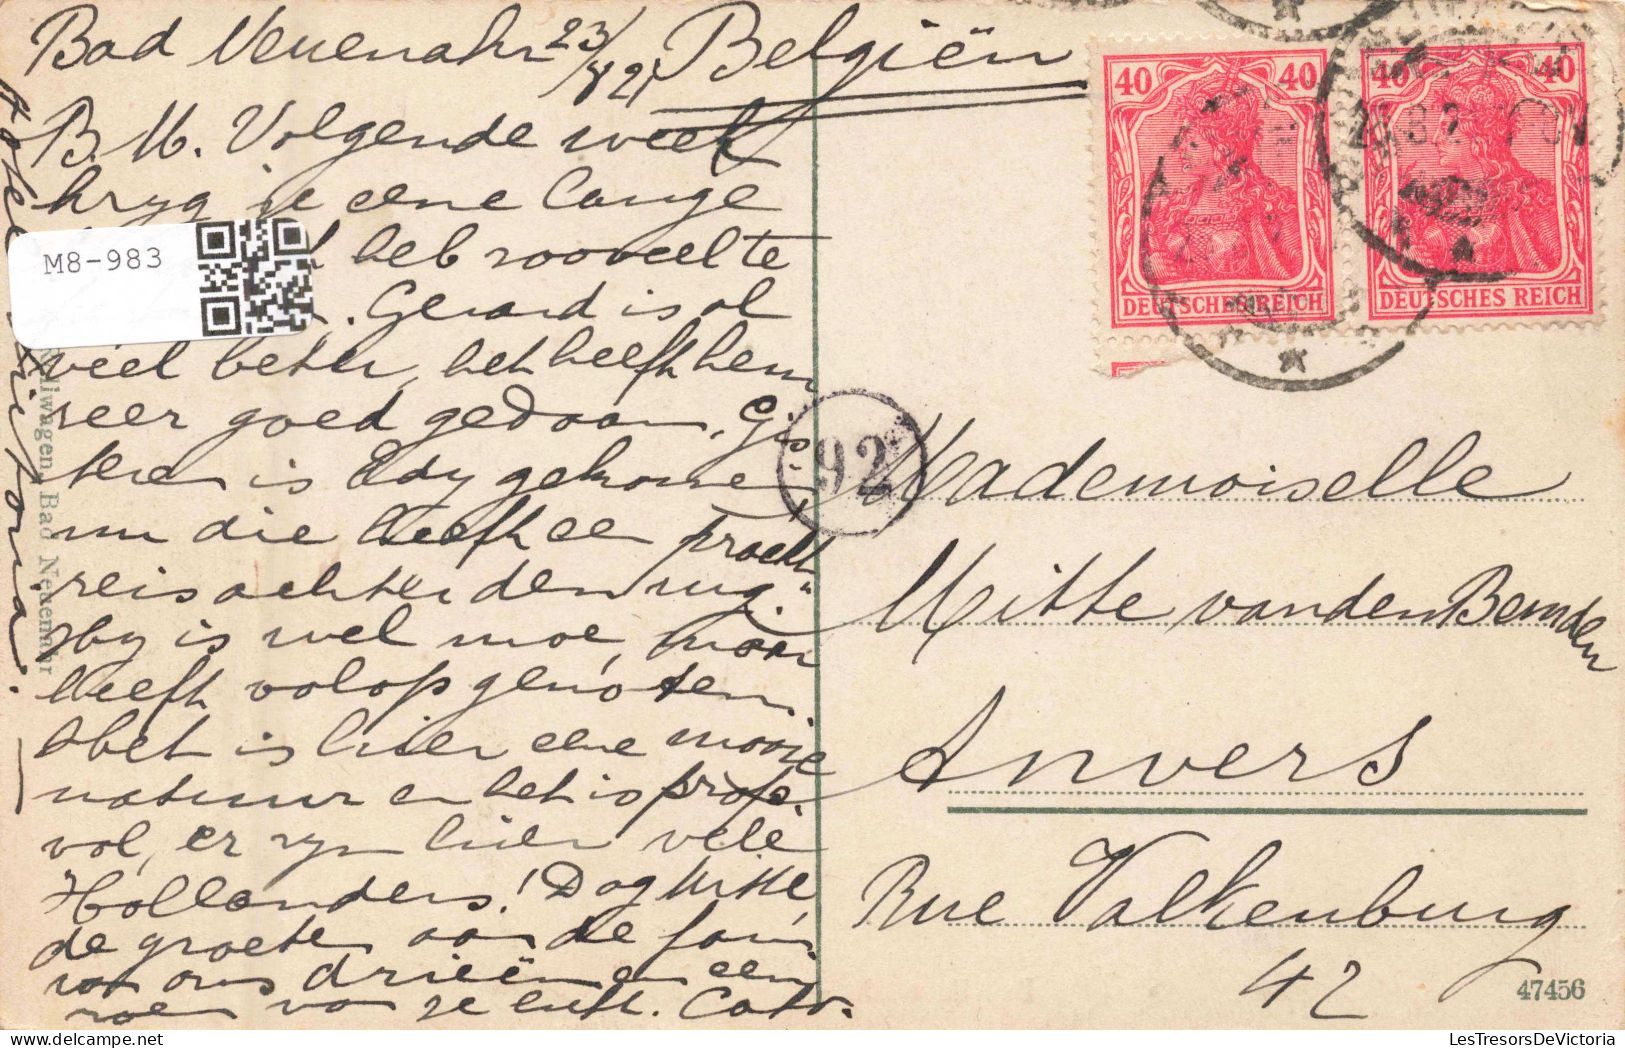 Bad Neuenahr 23/8 21
Belgiën
B.M. Volgende week
kryg je eene lange
heb zooveel te
Gerard is al
veel beter, het heeft hem
zeer goed gedaan. Gis-
teren is Edy gekomen
nu die heeft een pracht
reis achter den rug.
Hy is wel moe, maar
heeft volop genoten.
het is hier eene mooie
natuur en het is prop-
vol, er zyn hier vele
Hollanders! Dag Mitte,
de groeten aan de fam
van ons drieën en een
zoen van je Cato.
Hotel Victoria.
Bad Neuenahr
M8-983
40 40
DEUTSCHES REICH
40 40
DEUTSCHES REICH
92
Mademoiselle
Mitte van den Bemden
Anvers
Rue Valkenburg
42
47456
LesTresorsDeVictoria